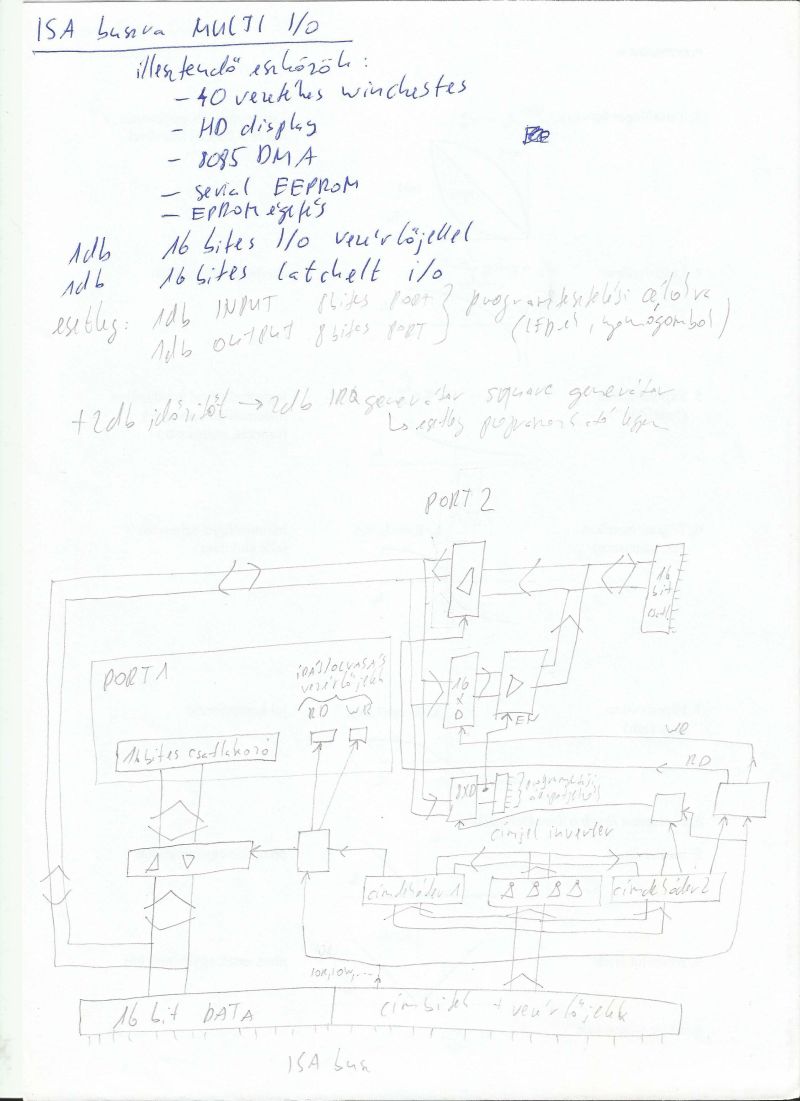 ISA buszra MULTI I/O
illesztendő eszközök:
- 40 vezetékes winchester
- HD display
- 8085 DMA
- serial EEPROM
- EPROM égetés
1db 16 bites I/O vezérlőjellel
1db 16 bites latchelt i/o
esetleg: 1db INPUT 8 bites PORT
1db OUTPUT 8 bites PORT
programtesztelési célokra
(LED-el, nyomógombbal)
+ 2db időzítőt → 2db IRQ generátor square generátor
↳ esetleg programozható legyen
PORT 2
16 bit
PORT1
ÍRÁS/OLVASÁS vezérlőjelek
RD WR
16 bites csatlakozó
16 x D
EN
WR
RD
8XD
címjel inverter
címdekóder 1
címdekóder 2
IOR, IOW, ...
16 bit DATA
címbitek + vezérlőjelek
ISA bus